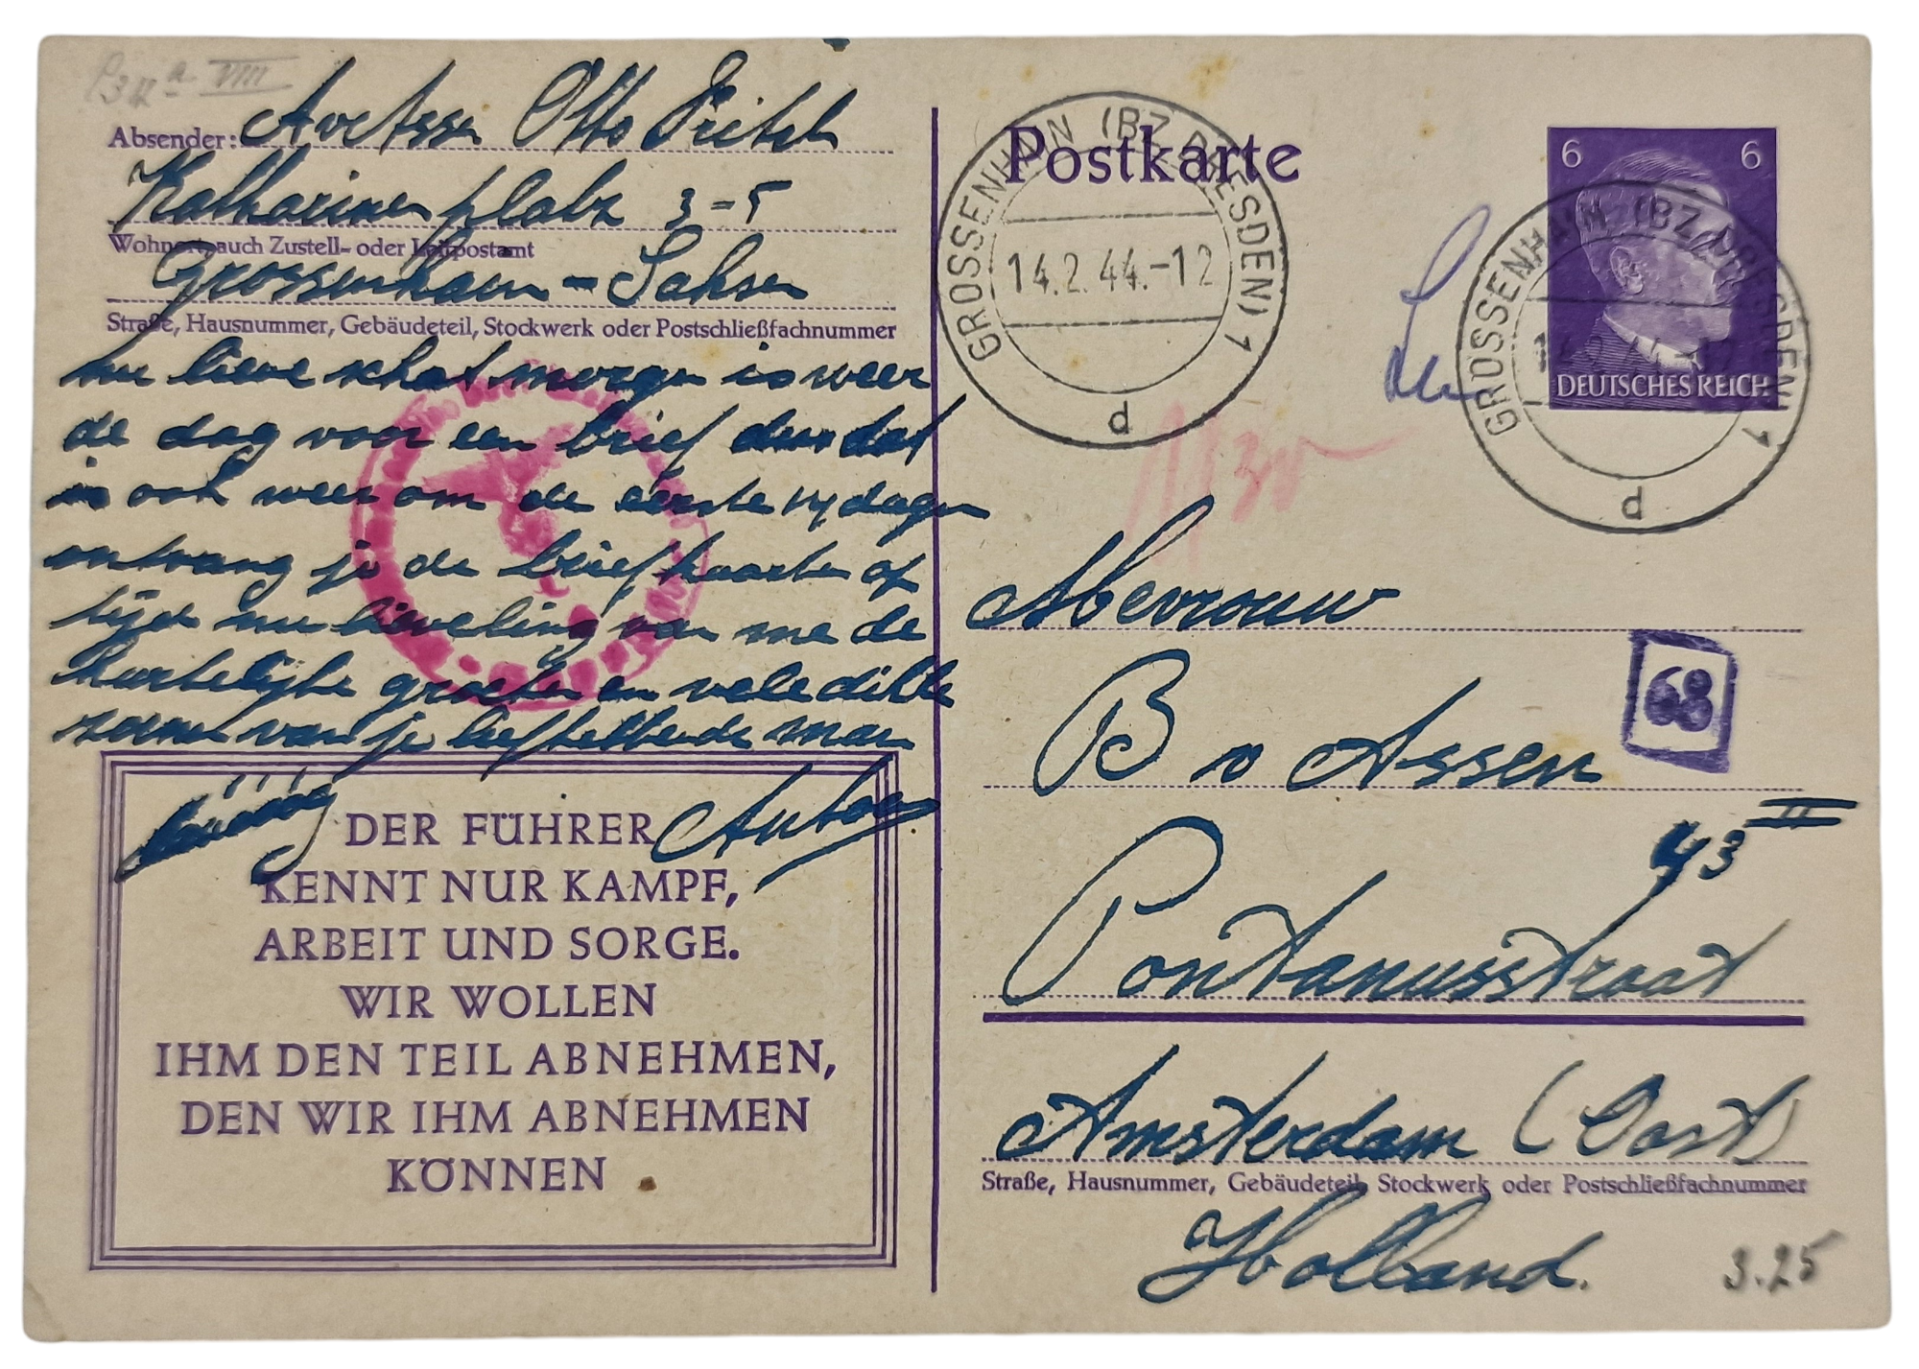 Absender: A v Assen Otto
Katharinenplatz 3-5
Wohnort, auch Zustell- oder Leitpostamt
Grossenhain - Sahsen
Straße, Hausnummer, Gebäudeteil, Stockwerk oder Postschließfachnummer
nu lieve schat morgen is weer
de dag voor een brief dus dat
is ook weer om de eerste 14 dagen
ontvang je de briefkaarten of
nu lieveling van me de
hartelijke groeten en vele dikke
van je liefhebbende man
Anton
DER FÜHRER
KENNT NUR KAMPF,
ARBEIT UND SORGE.
WIR WOLLEN
IHM DEN TEIL ABNEHMEN,
DEN WIR IHM ABNEHMEN
KÖNNEN
Postkarte
GROSSENHAIN (BZ DRESDEN) 1
14.2.44.-12
d
6 6
DEUTSCHES REICH
GROSSENHAIN (BZ DRESDEN) 1
14.2.44.-12
d
Mevrouw
68
B v Assen
43 II
Pontanusstraat
Amsterdam (Oost)
Straße, Hausnummer, Gebäudeteil, Stockwerk oder Postschließfachnummer
Holland.
3.25